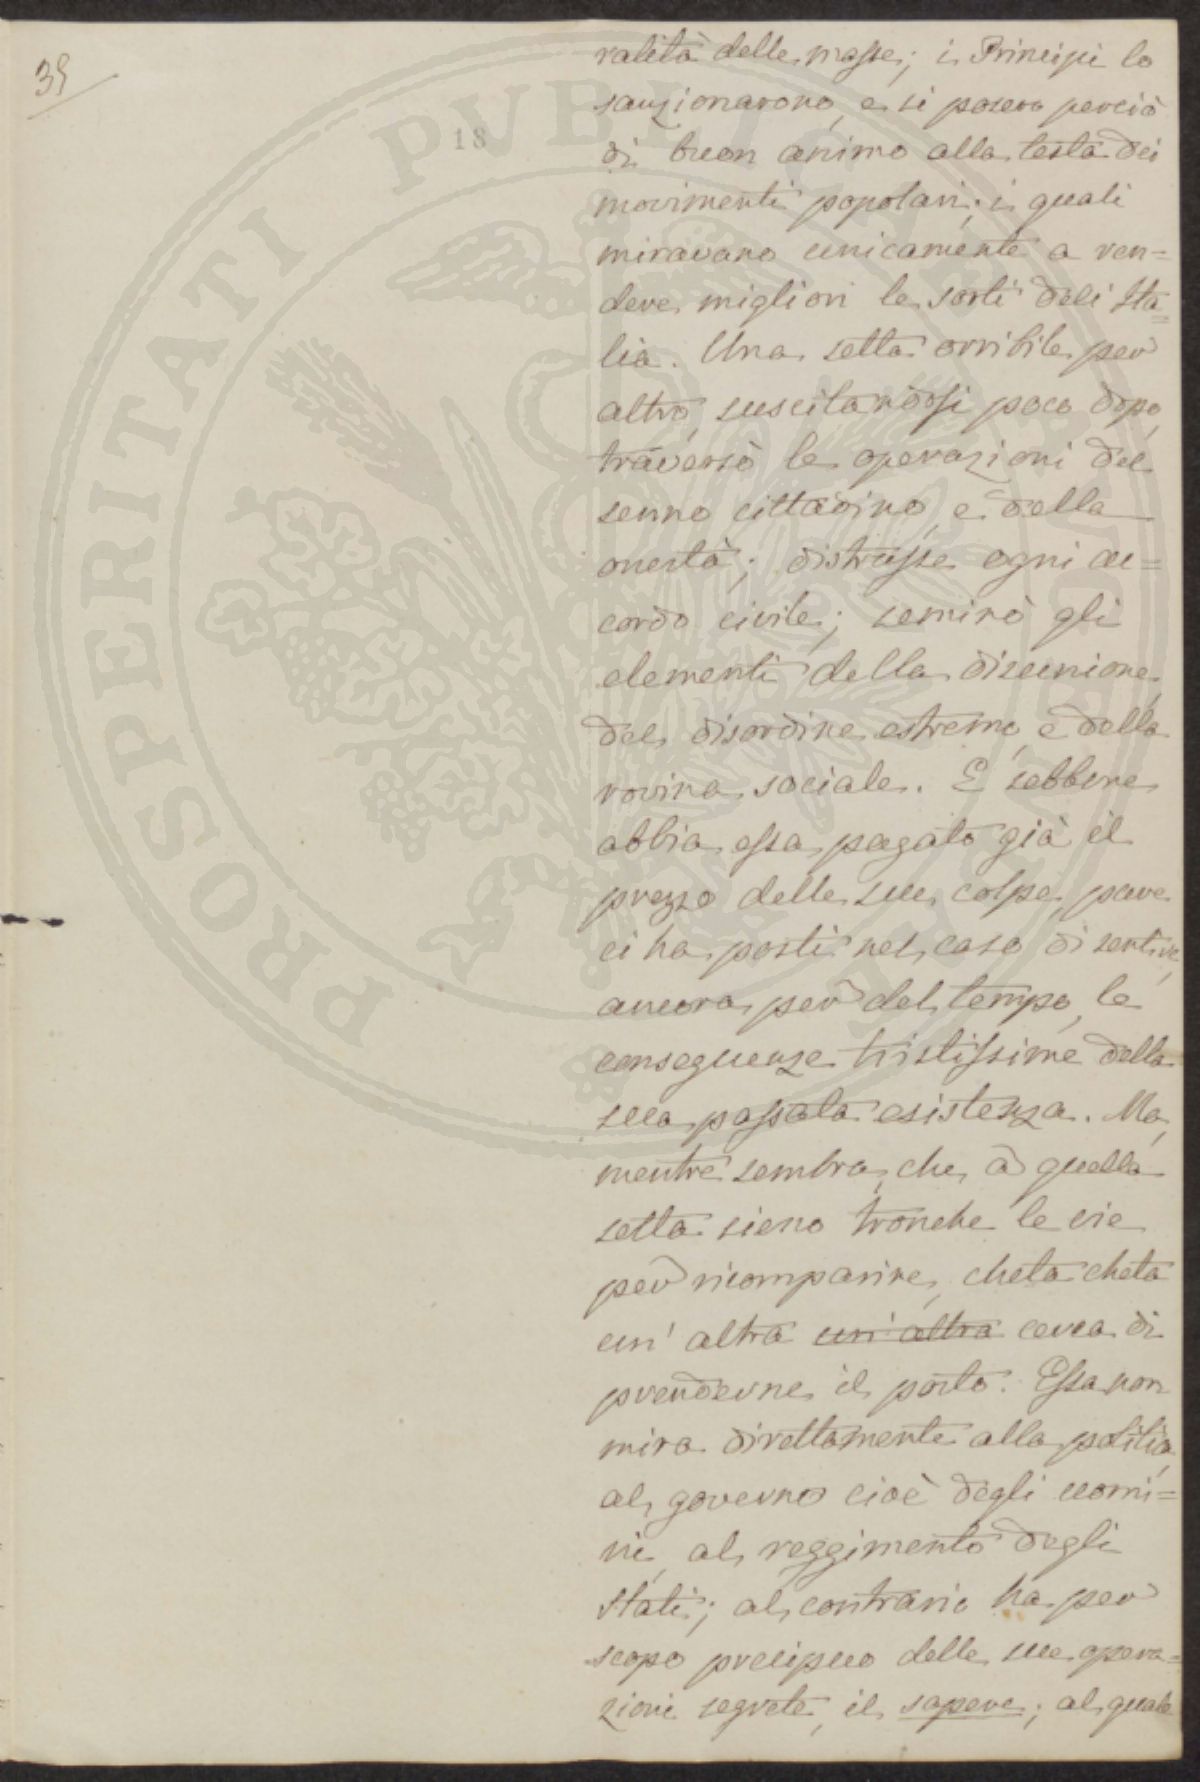 39
18
ralità delle masse; i Principi lo
sanzionarono, e si posero perciò
di buon animo alla testa dei
movimenti popolari; i quali
miravano unicamente a ren=
dere migliori le sorti dell' Ita=
lia. Una setta orribile per
altro, suscitandosi poco dopo,
traversò le operazioni del
senno cittadino, e della
onestà; distrusse ogni ac=
cordo civile; seminò gli
elementi della disunione,
del disordine estremo, e della
rovina sociale. E sebbene
abbia essa pagato già il
prezzo delle sue colpe, pure
ci ha posti nel caso di sentire,
ancora per del tempo, le
conseguenze tristissime della
sua passata esistenza. Ma,
mentre sembra, che a quella
setta sieno tronche le vie
per ricomparire, cheta cheta
un' altra un' altra cerca di
prenderne il posto. Essa non
mira direttamente alla politica,
al governo cioè degli uomi=
ni, al reggimento degli
Stati; al contrario ha per
scopo precipuo delle sue opera=
zioni segrete, il sapere; al quale
PROSPERITATI PVBLICAE